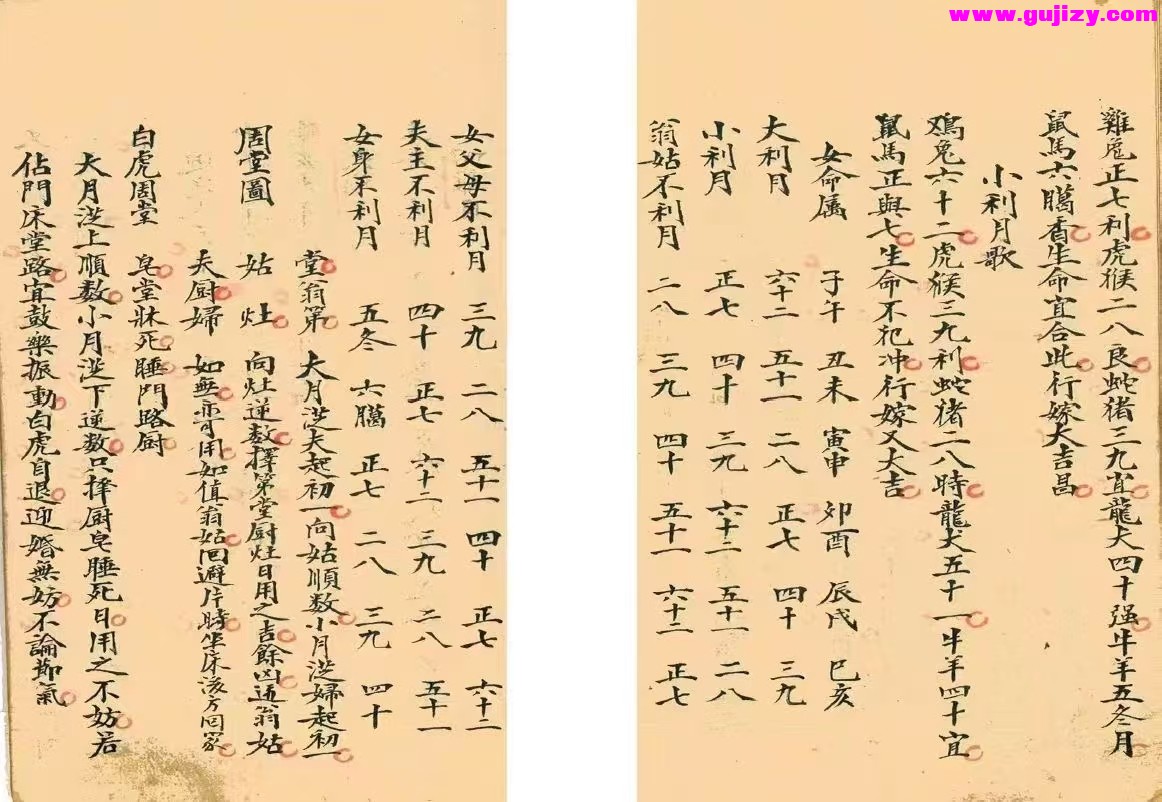 www.gujizy.com
雞兔正七利虎猴二八良蛇猪三九宜龍犬四十强牛羊五冬月
鼠馬六臈香生命宜合此行嫁大吉昌
小利月歌
鸡兔六十二虎猴三九利蛇猪二八時龍犬五十一牛羊四十宜
鼠馬正與七生命不犯冲行嫁又大吉
女命属 子午 丑未 寅申 卯酉 辰戌 巳亥
大利月 六十二 五十一 二八 正七 四十 三九
小利月 正七 四十 三九 六十二 五十一 二八
翁姑不利月 二八 三九 四十 五十一 六十二 正七
女父母不利月 三九 二八 五十一 四十 正七 六十二
夫主不利月 四十 正七 六十二 三九 二八 五十一
女身不利月 五冬 六臈 正七 二八 三九 四十
堂翁第 大月从夫起初一向姑順数小月从婦起初一
周堂圖 姑 灶 向灶逆数擇第堂厨灶日用之吉餘凶逆翁姑
夫厨婦 如無亦可用如值翁姑回避片時坐床後方回家
白虎周堂 皂堂床死睡門路厨
大月从上順数小月从下逆数只择厨皂睡死日用之不妨若
佔門床堂路宜鼓樂振動白虎自退迎婚無妨不論節氣